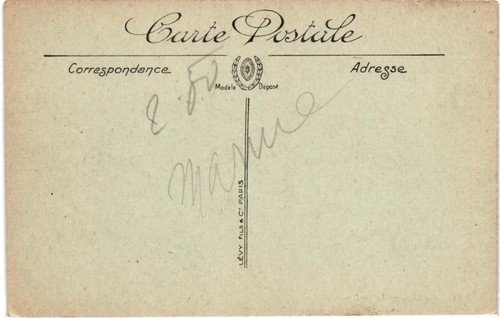 Carte Postale
Correspondance
Adresse
Modèle Déposé
2.50
Marne
LÉVY FILS & Cie PARIS